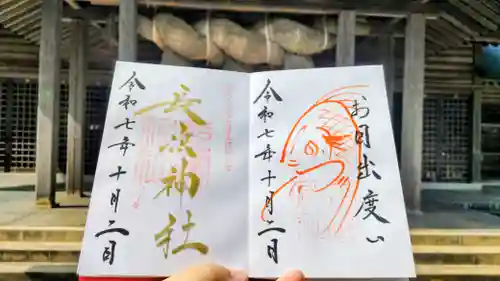 お目出度い
令和七年十月二日
長浜神社
令和七年十月二日